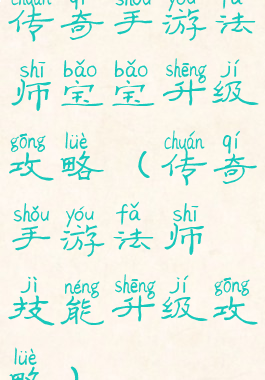 chuán qí shǒu yóu fǎ
传奇手游法
shī bǎo bǎo shēng jí
师宝宝升级
gōng lüè chuán qí
攻略（传奇
shǒu yóu fǎ shī
手游法师
jì néng shēng jí gōng
技能升级攻
lüè
略）